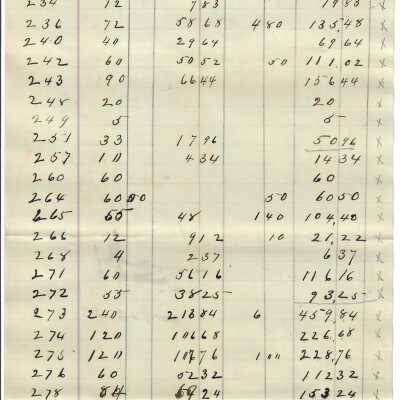 234 12 7 83 19 83 x
236 72 58 68 4 80 135,48 x
240 40 29 64 69 64 x
242 60 50 52 50 111,02 x
243 90 66 44 156 44 x
248 20 20 x
249 5 5 x
251 33 17 96 50 96 x
257 10 4 34 14 34 x
260 60 60 x
264 60 00 50 60 50 x
265 55 48 1 40 104,40 x
266 12 9 12 10 21,22 x
268 4 2 37 6 37 x
271 60 56 16 116 16 x
272 55 38 25 93,25 x
273 240 213 84 6 459,84 x
274 120 106 68 226,68 x
275 120 107 76 1 00 228,76 x
276 60 52 32 112 32 x
278 84 69 24 153 24 x